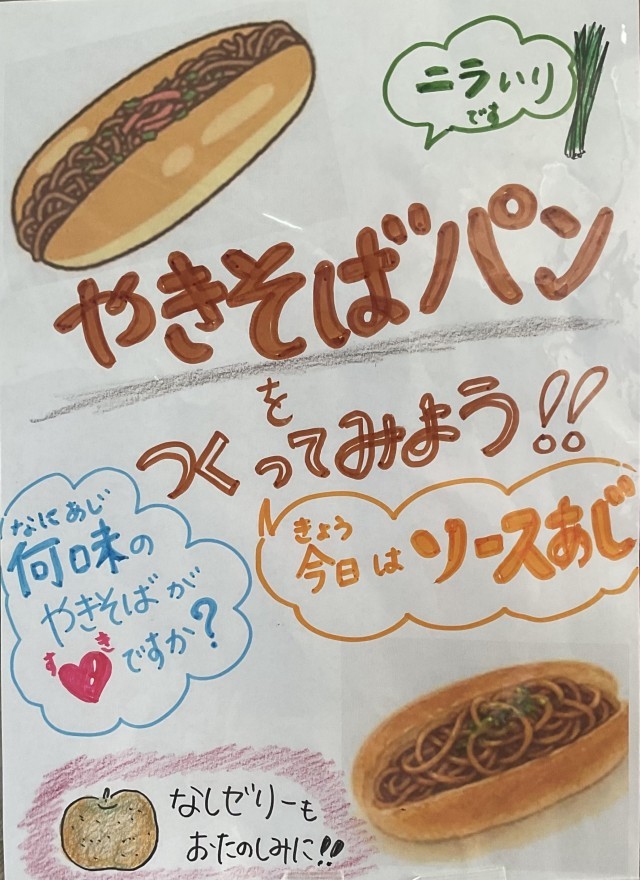 ニラいり
です
やきそばパン
を
つくってみよう!!
なにあじ
何味の
やきそばが
すき
♥ですか?
きょう
今日はソースあじ
なしゼリーも
おたのしみに!!